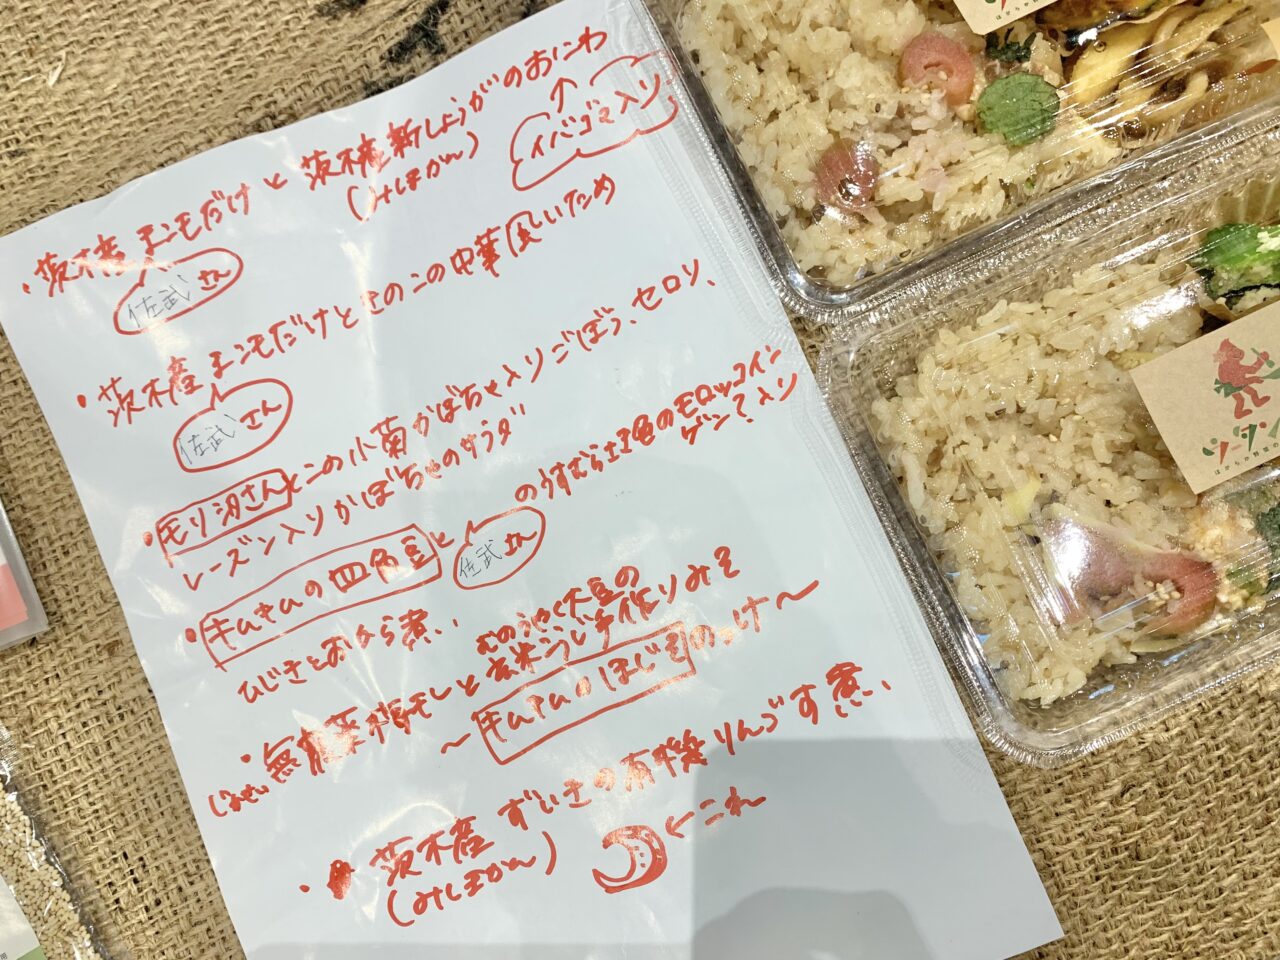 ・茨木産 まこもだけと 茨木産新しょうがのおにわ
(みしまかん)
イバゴマ入り
佐武さん
・茨木産 まこもだけときのこの中華風いため
佐武さん
・毛リ沼さんとこの小菊かぼちゃ入りごぼう、セロリ、
レーズン入りかぼちゃのサラダ
・キムキムの四角豆と 佐武さん のうすむらさき色のモロッコイン
ゲン?入り
ひじきとおから煮
・無農薬梅干しと むのうやく大豆の
玄米こうじ手作りみそ
じかせい
〜キムキムのほじそのっけ〜
・茨木産 ずいきの有機りんごす煮
(みしまかん)
←これ
ツータン
はからか野菜の